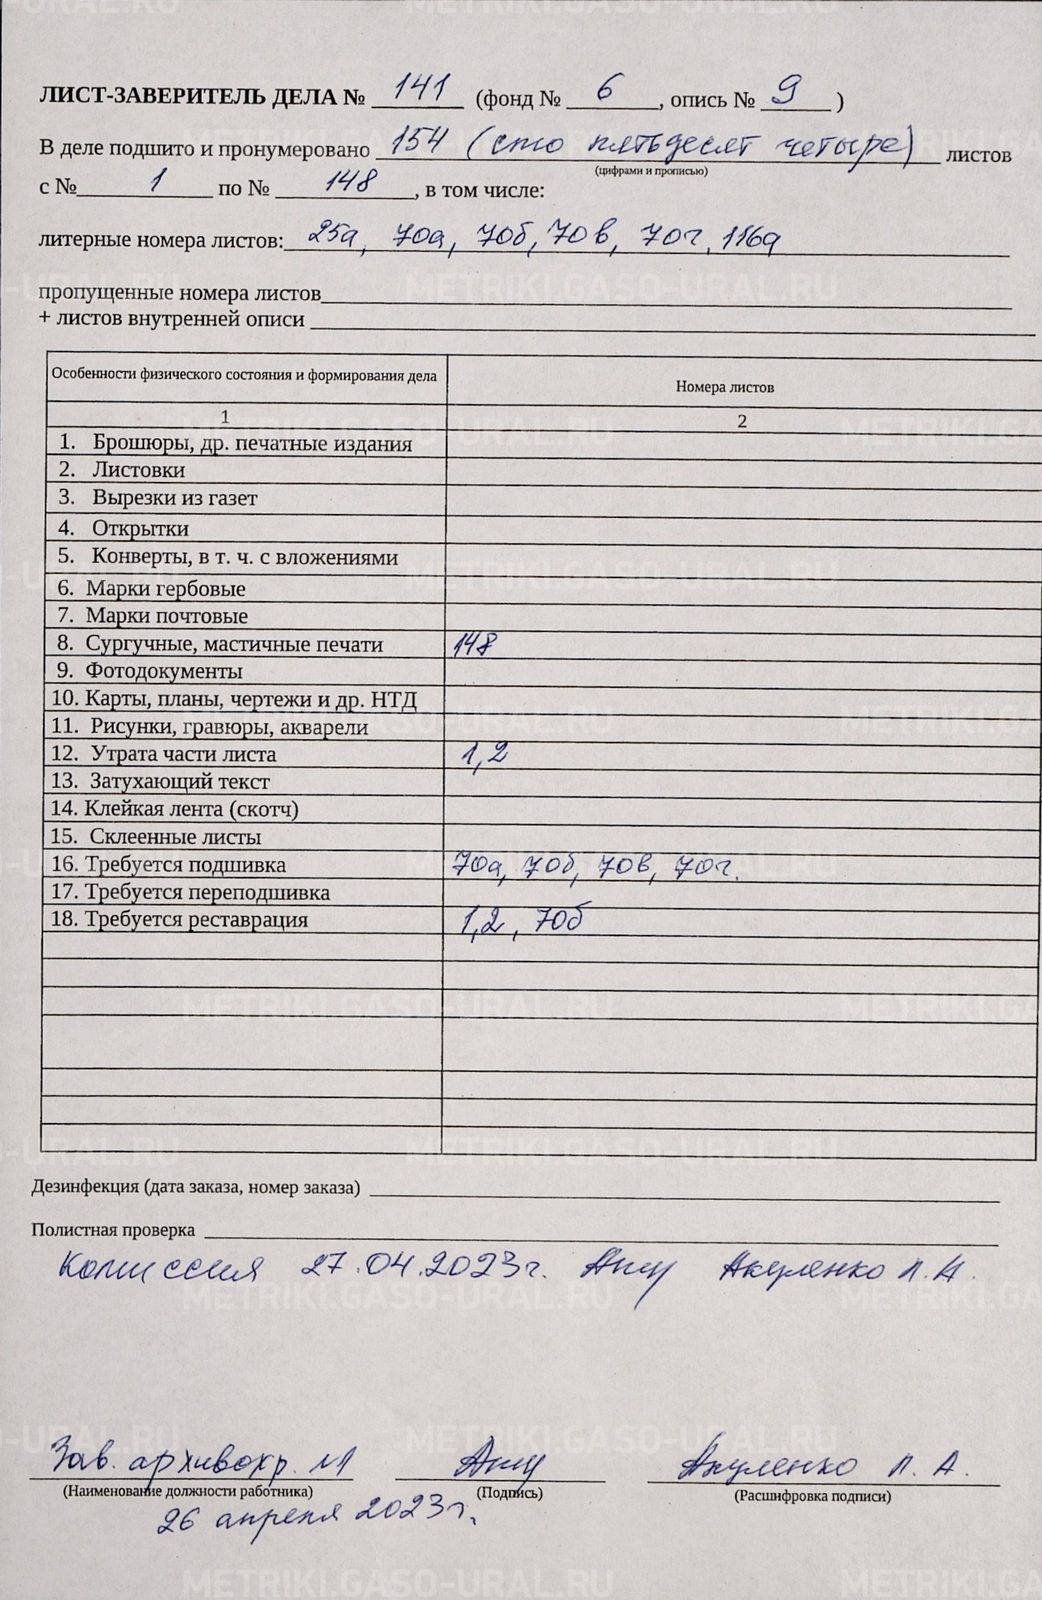 ЛИСТ-ЗАВЕРИТЕЛЬ ДЕЛА № 141 (фонд № 6, опись № 9)
В деле подшито и пронумеровано 154 (сто пятьдесят четыре) листов
(цифрами и прописью)
с № 1 по № 148, в том числе:
литерные номера листов: 25а, 70а, 70б, 70в, 70г, 116а
пропущенные номера листов
+ листов внутренней описи
Особенности физического состояния и формирования дела Номера листов
1 2
1. Брошюры, др. печатные издания
2. Листовки
3. Вырезки из газет
4. Открытки
5. Конверты, в т. ч. с вложениями
6. Марки гербовые
7. Марки почтовые
8. Сургучные, мастичные печати 148
9. Фотодокументы
10. Карты, планы, чертежи и др. НТД
11. Рисунки, гравюры, акварели
12. Утрата части листа 1,2
13. Затухающий текст
14. Клейкая лента (скотч)
15. Склеенные листы
16. Требуется подшивка 70а, 70б, 70в, 70г.
17. Требуется переподшивка
18. Требуется реставрация 1,2, 70б
Дезинфекция (дата заказа, номер заказа)
Полистная проверка
Комиссия 27.04.2023г. Акуленко Л.А.
Зав. архивохр. №1 Акуленко Л.А.
(Наименование должности работника) (Подпись) (Расшифровка подписи)
26 апреля 2023г.
METRIKI.GASO-URAL.RU